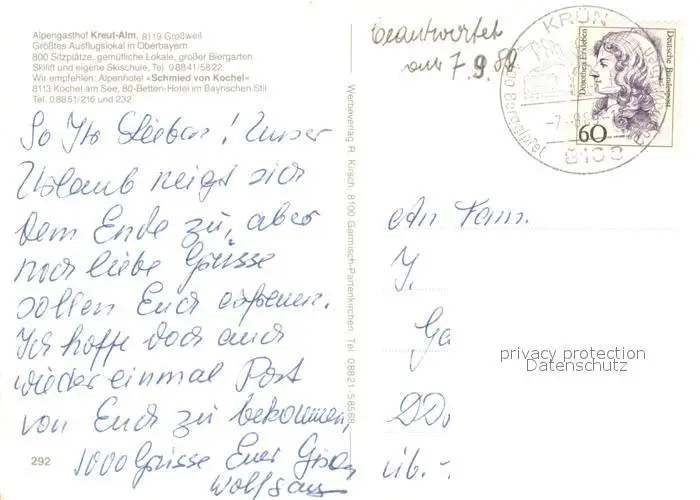 Alpengasthof Kreut-Alm, 8119 Großweil
Größtes Ausflugslokal in Oberbayern
800 Sitzplätze, gemütliche Lokale, großer Biergarten
Skilift und eigene Skischule, Tel. 08841/5822.
Wir empfehlen: Alpenhotel «Schmied von Kochel»
8113 Kochel am See, 80-Betten-Hotel im Bayrischen Stil
Tel. 08851/216 und 232
So Ihr Lieben! Unser
Urlaub neigt sich
dem Ende zu, aber
noch liebe Grüsse
sollen Euch erfreuen.
Ich hoffe doch auch
wieder einmal Post
von Euch zu bekommen,
1000 Grüsse Euer
Wolfgang
292
Werbeverlag R. Kirsch, 8100 Garmisch-Partenkirchen, Tel. 08821-58568
beantwortet
am 7.9.89
KRÜN
8108
Dorothea Erxleben
Deutsche Bundespost
60
An Fam.
J.
Ga
DD
üb.
privacy protection
Datenschutz